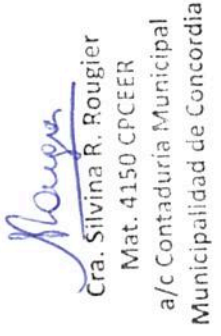 Cra. Silvina R. Rougier
Mat. 4150 CPCEER
a/c Contaduría Municipal
Municipalidad de Concordia